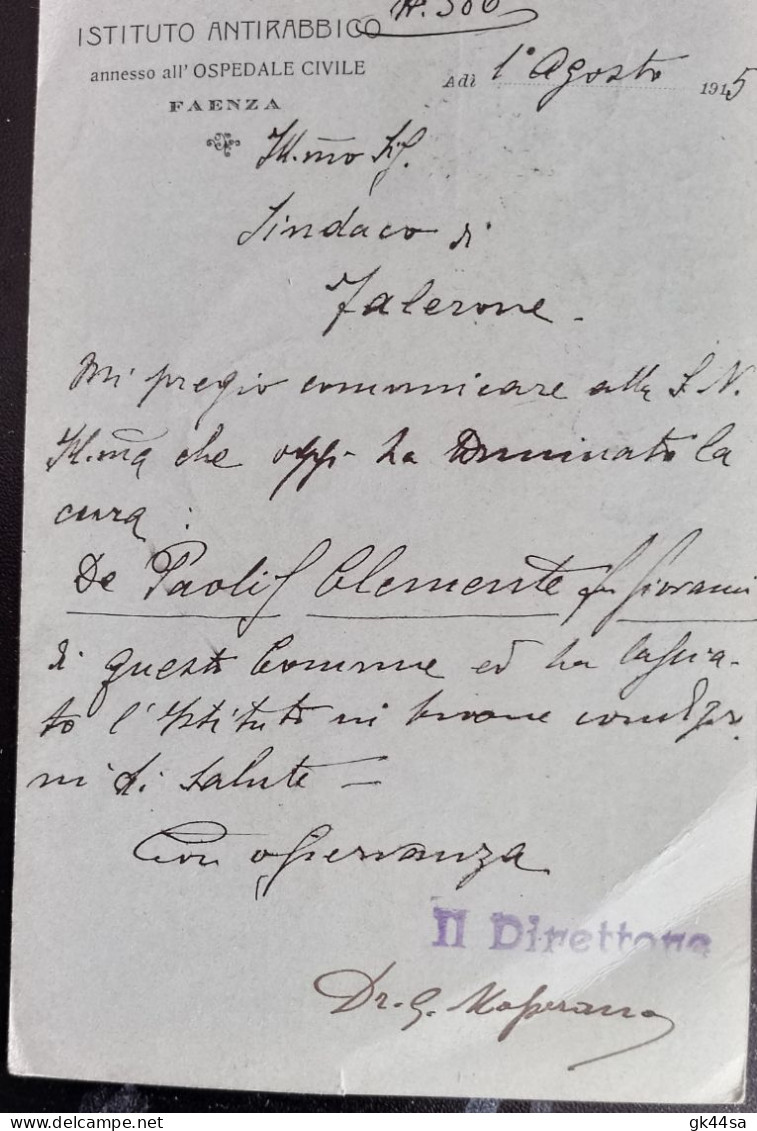 N. 306
ISTITUTO ANTIRABBICO
annesso all' OSPEDALE CIVILE
FAENZA
Adì 1° Agosto 1915
Ill.mo Sig.
Sindaco di
Falerone.
Mi pregio comunicare alla S. V.
Ill.ma che oggi ha terminato la
cura:
De Paolis Clemente fu Giovanni
di questo Comune ed ha lascia-
to l'Istituto in buone condizio
ni di salute —
Con osservanza
Il Direttore
Dr. G.
delcampe.net
gk44sa